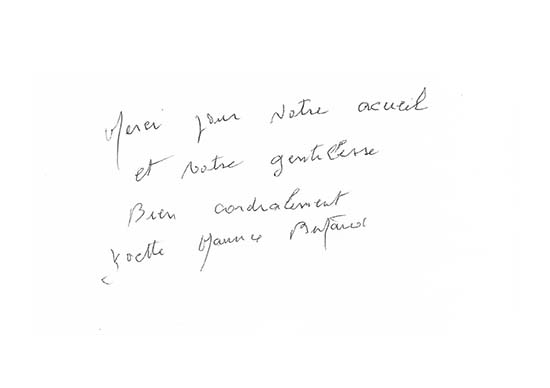 Merci pour votre accueil
et votre gentillesse
Bien cordialement
Maurice